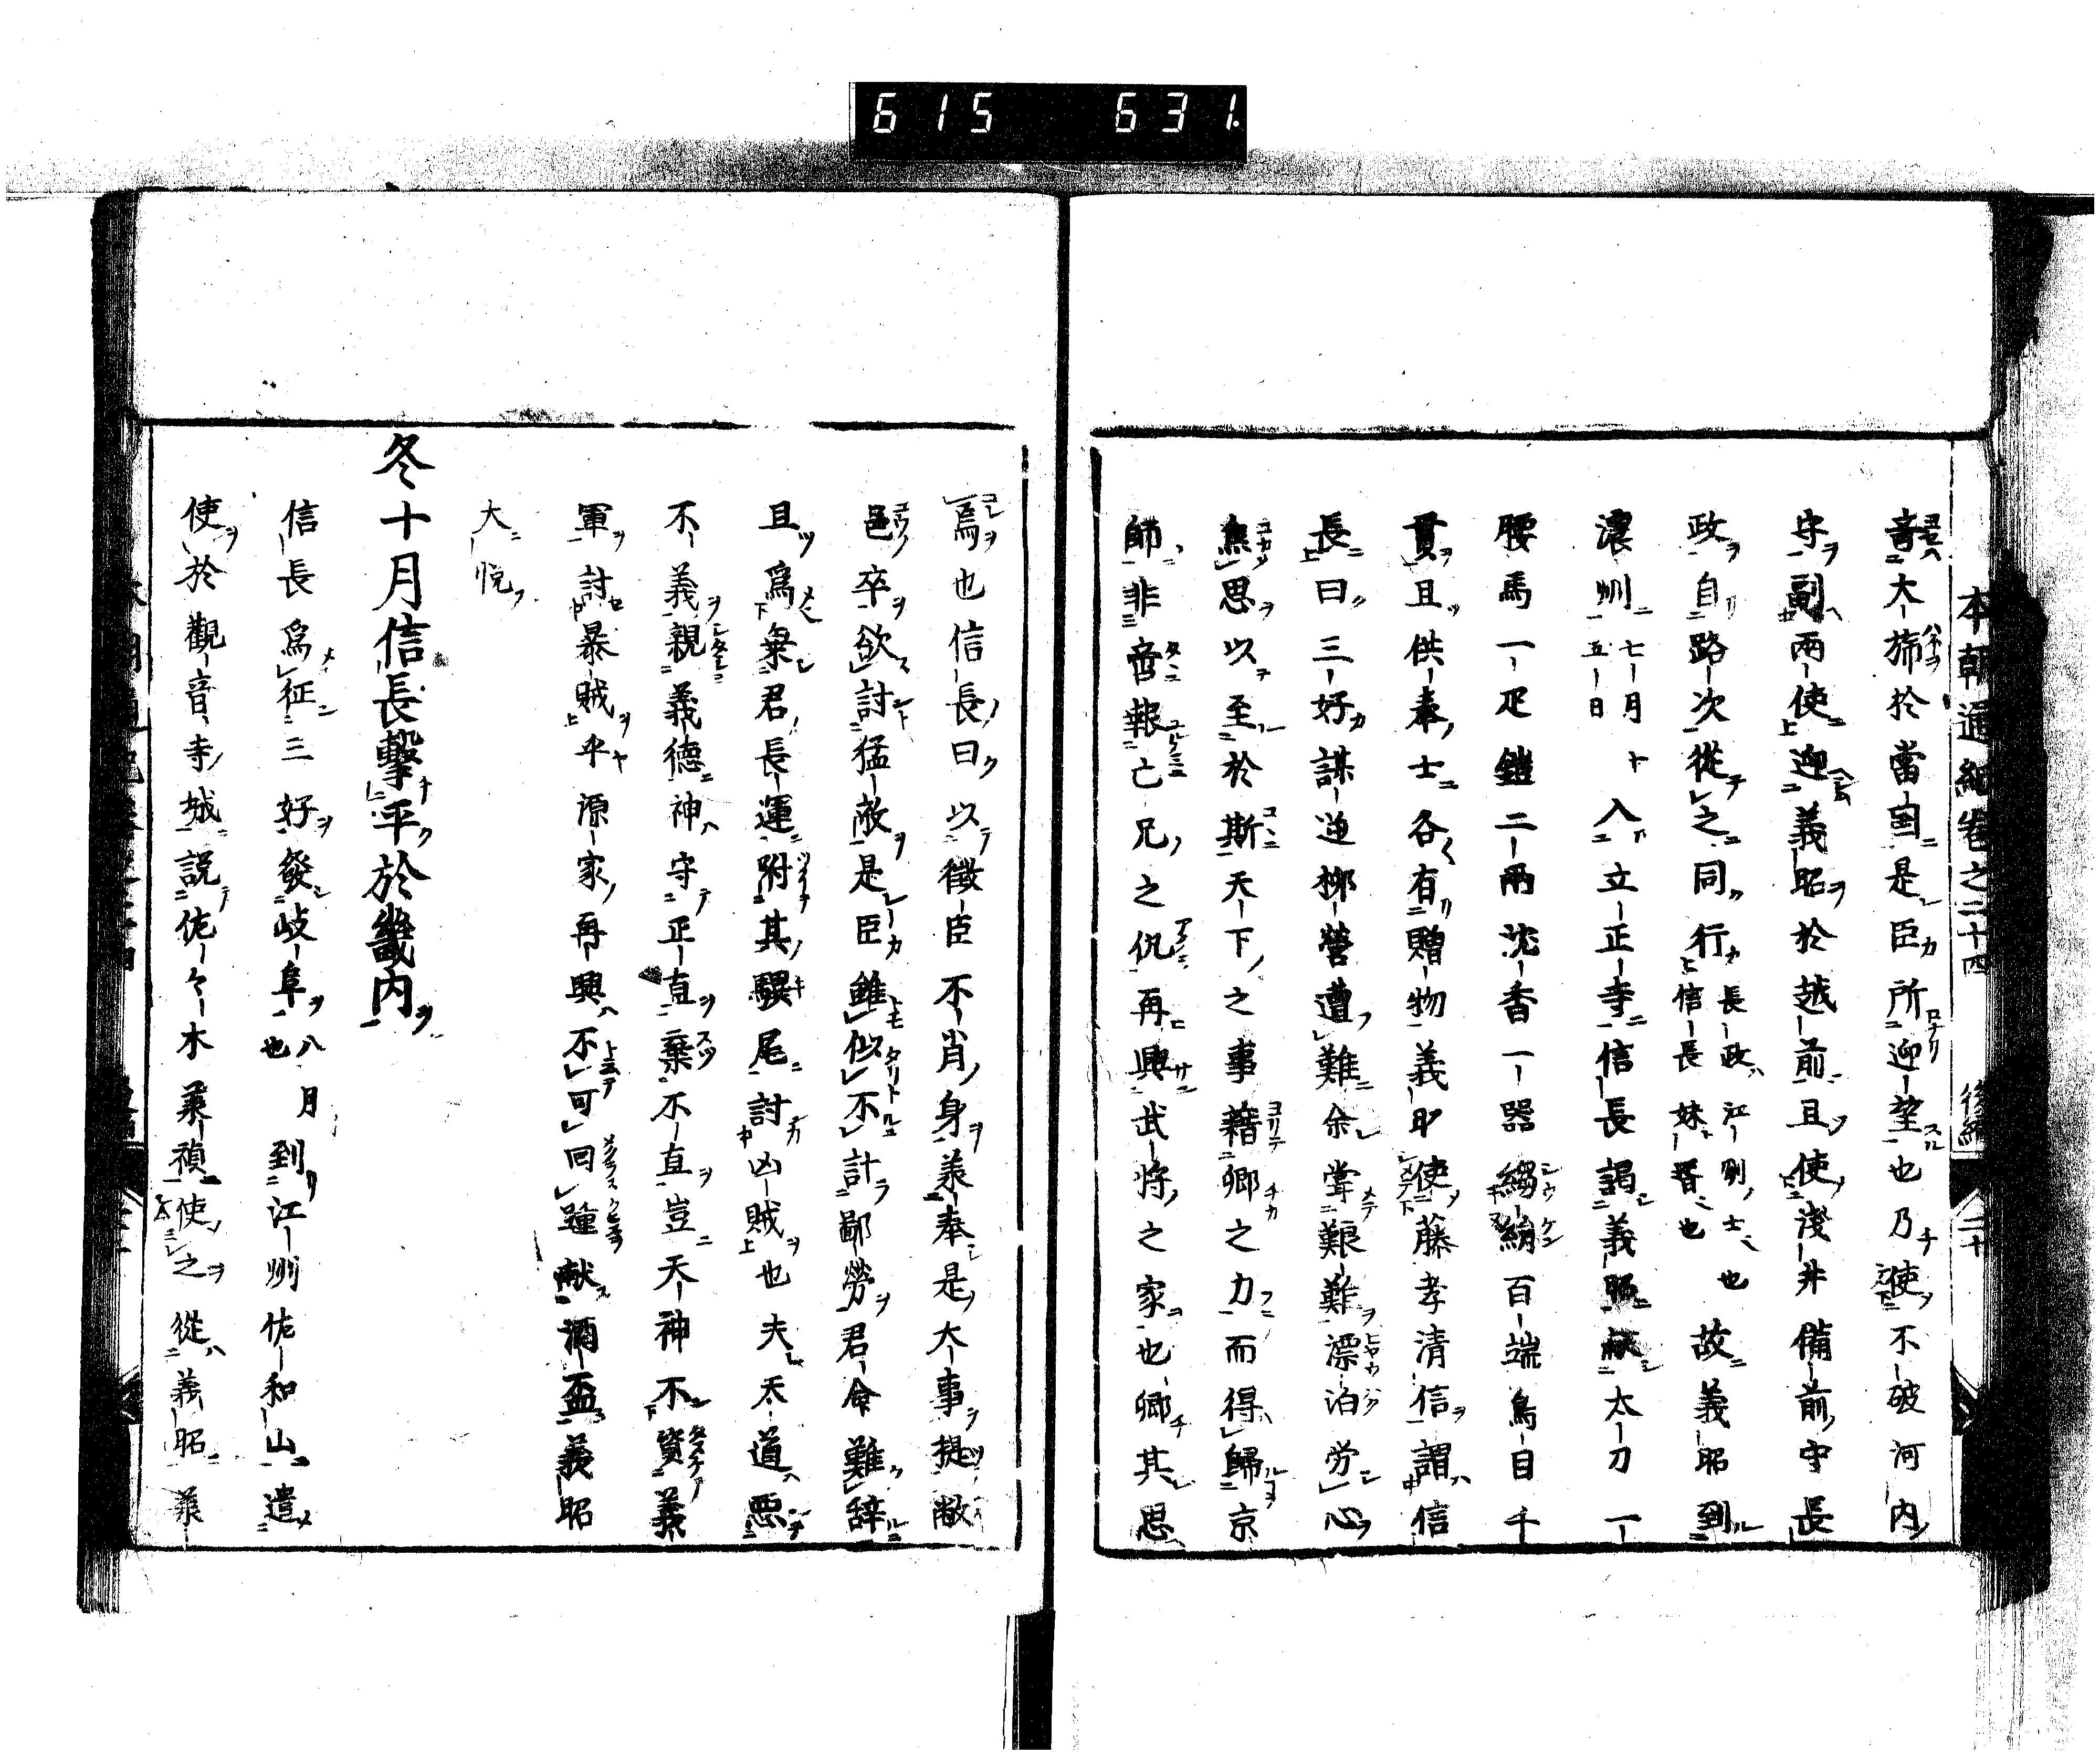 615 631
本朝通紀卷之二十四 後編 二十
音大旆於當国是臣所迎望也乃使不破河内
守副兩使迎義昭於越前且使淺井備前守長
政自路次從之同行長政江州士也信長妹聟也故義昭到
濃州七月廿五日入立正寺信長謁義昭献太刀一
腰馬一疋鎧二兩沈香一器縐絹百端鳥目千
貫且供奉士各有贈物義昭使藤孝清信謂信
長曰三好謀逆柳營遭難余嘗艱難漂泊労心
焦思以至於斯天下之事藉卿之力而得歸京
師非啻報亡兄之仇再興武将之家也卿其思
焉也信長曰以微臣不肖身義奉是大事提敝
邑卒欲討猛敵是臣雖似不計鄙勞君命難辞
且爲棄君長運附其驥尾討凶賊也夫天道悪
不義親義德神守正直棄不直豈天神不資義
軍討暴賊乎源家再興不可回踵献酒盃義昭
大悅
冬十月信長擊平於畿内
信長爲征三好發岐阜八月也到江州佐和山遣
使於觀音寺城說佐々木義禎使之從義昭義